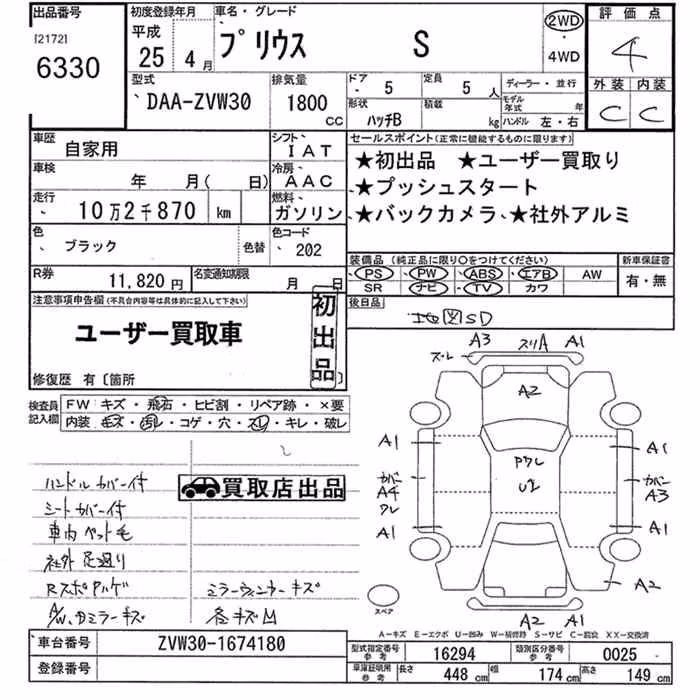 出品番号 初度登録年月 車名・グレード 2WD 評価点
[2172] 平成 プリウス S ・ 4
6330 25年 4月 4WD
型式 排気量 ドア 定員 ディーラー・並行 外装 内装
DAA-ZVW30 1800 CC 5 5人 モデル年式 年 C C
形状 ハッチB 積載 kg ハンドル 左・右
車歴 自家用 シフト IAT セールスポイント(正常に機能するものに限ります)
車検 年 月( 日) 冷房 AAC ★初出品 ★ユーザー買取り
走行 10万2千870 km 燃料 ガソリン ★プッシュスタート
★バックカメラ、★社外アルミ
色 ブラック 色替 色コード 202
装備品(純正品に限り○をつけてください) 新車保証書
R券 11,820円 名変通知期限 月 日 PS PW ABS エアB AW 有・無
SR ナビ TV カワ
注意事項申告欄(不具合内容等は具体的に記入して下さい) 初出品 後日品 地図SD
ユーザー買取車
修復歴 有〔箇所
検査員記入欄 FW キズ・飛石・ヒビ割・リペア跡・×要
内装・キズ・汚れ・コゲ・穴・スレ・キレ・破レ
A3 スリA A1
ズレ
A2
A1 A1
PクレU2
カバーA4クレ カバーA3
A1 A1
A2
A2 A1
スペア
ハンドルカバー付 買取店出品
シートカバー付
車内ペット毛
社外足廻り
Rスポハゲ ミラーウィンカーキズ
A/W、ミラーキズ 各キズ凹
A−キズ E−エクボ U−凹み W−補修跡 S−サビ C−腐食 XX−交換済
車台番号 ZVW30-1674180 型式指定番号 参考 16294 類別区分番号 参考 0025
登録番号 車庫証明用 参考 長さ 448 cm 幅 174 cm 高さ 149 cm